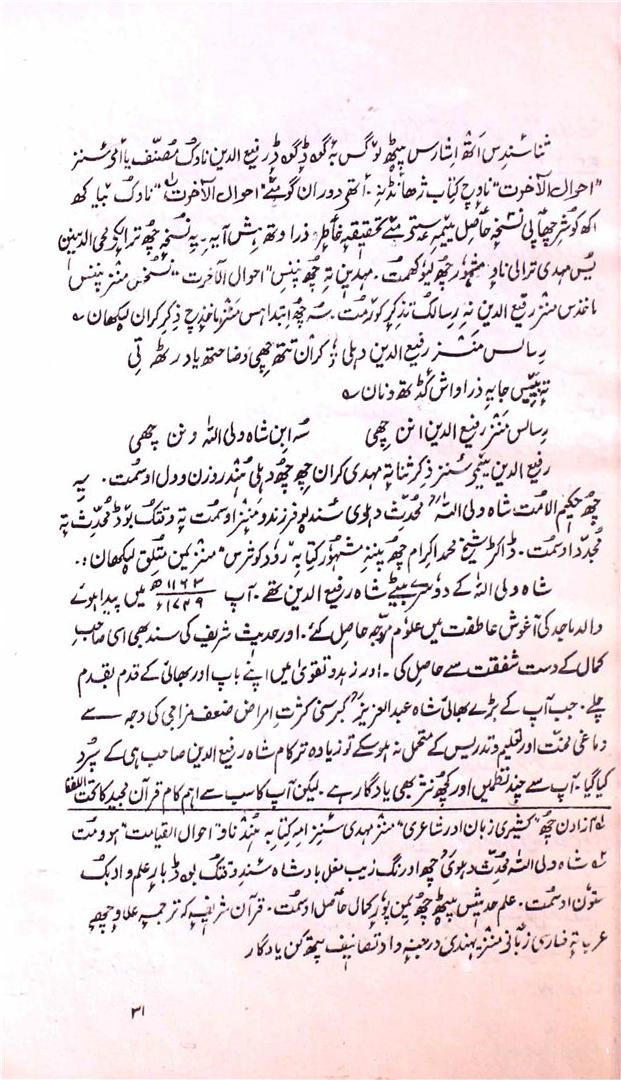 ثنا سُندِس اَتھ اِشارس پیٹھ لوٚگُس بہٕ گوڈٕ گوڈٕ رفیع الدین ناوٕک مُصنّف یا اَمی سُنز
"احوال الآخرت" ناوٕچ کتاب ژھانڈنہِ۔ اَتھۍ دوران گو مےٚ "احوال الآخرت" ناوٕک بیاکھ
اکھ کوٚشُر چھاپی نُسخہٕ حٲصِل ییٚمہِ عدستی مےٚ تحقیقہٕ خٲطرٕ ذرا وتھ ہِش آیہِ۔ یہِ نُسخہٕ چھُ ترالکۍ محی الدین
یس مہدی ترالی ناوٕ مشہوٗر چھُ لیوٗکھمُت۔ مہدین تہِ چھُ پننِس "احوال الآخرت" نُسخس منٛز پننِس
ماخذس منٛز رفیع الدین نہِ رسالُک تذکرٕ کوٚرمُت۔ سُہ چھُ ابتداہس منٛز ماخذچ ذِکر کران لیکھان ؎
رسالس منٛز رفیع الدین دہلی ذِکران تتھ چھی وضاحتھ یاد رٹھ تی
تہٕ پیٚٹھۍ جایہِ ذراواش کٔڈتھ ونان ؎
رسالس منٛز رفیع الدین انن چھی سُہ ابنِ شاہ ولی اللہ ونن چھی
رفیع الدین یٔمۍ سُنز ذِکر ثنا تہٕ مہدی کران چھِ چھُ دہلی ہُنٛد روزن وول اوسمُت۔ یہِ
چھُ حکیم الامت شاہ ولی اللہ محدّث دہلوی سُند فرزند منٛز اوسمُت یہِ وقتُک بوٚڈ محدّث تہٕ
مُجدّد اوسمُت۔ ڈاکٹر شیخ محمد اکرام چھُ پننہِ مشہوٗر کتابہِ "رودِ کوثرس" منٛز یمن متعلق لیکھان:۔
شاہ ولی اللہ کے دوسرے بیٹے شاہ رفیع الدین تھے۔ آپ ۱۱۶۳ھ / ۱۷۴۹ء میں پیدا ہوئے
والد ماجد کی آغوش عاطفت میں علوم مروّجہ حاصل کئے۔ اور حدیث شریف کی سند بھی اسی صاحب
کمال کے دست شفقت سے حاصل کی۔ اور زہد و تقویٰ میں اپنے باپ اور بھائی کے قدم بقدم
چلے۔ جب آپ کے بڑے بھائی شاہ عبدالعزیزؒ کبر سنی کثرتِ امراض ضعف مزاجی کی وجہ سے
دماغی محنت اور تعلیم و تدریس کے متحمل نہ ہو سکے تو زیادہ تر کام شاہ رفیع الدین صاحب ہی کے سپرد
کیا گیا۔ آپ سے چند نظمیں اور کچھ نثر بھی یادگار ہے۔ لیکن آپ کا سب سے اہم کام قرآن مجید کا تحت اللفظ
آزادن چھُ "کشیری زبان اور شاعری" منٛز مہدی سُنزِ امہِ کتابہِ ہُنٛد ناو "احوال القیامت" ہوومُت
شاہ ولی اللہ محدّث دہلوی چھُ اورنگ زیب مغل بادشاہ سُند وقتُک بوٚڈ بارٕ علم و ادبُک
ستوٗن اوسمُت۔ علمِ حدیثس پیٹھ چھُ یمن پوٗرٕ کمال حٲصل اوسمُت۔ قرآن شریفکہِ ترجمہٕ علاوٕ چھِ
عربی تہٕ فارسی زبٲنۍ منٛز یہنٛدی درجنہٕ واد تصانیف یتھ کن یادگار
۳۱